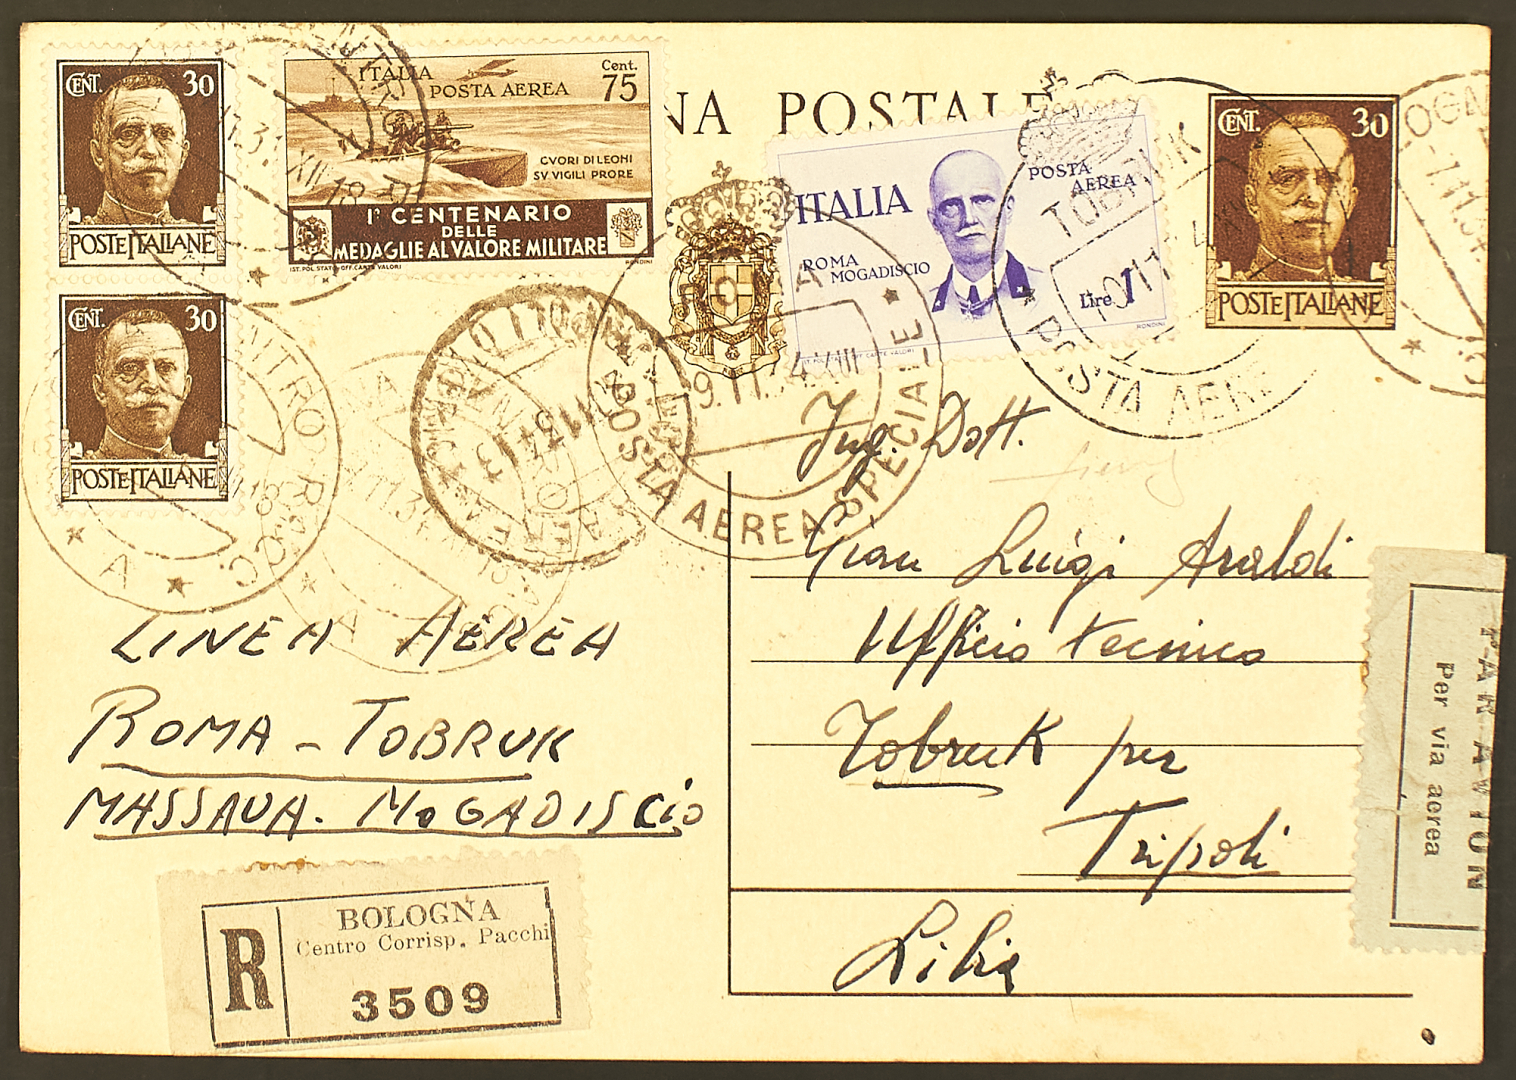 CENT. 30
POSTE ITALIANE
CENT. 30
POSTE ITALIANE
ITALIA
POSTA AEREA
Cent.
75
CVORI DI LEONI
SV VIGILI PRORE
I° CENTENARIO
DELLE
MEDAGLIE AL VALORE MILITARE
IST. POL. STATO OFF. CARTE VALORI
RONDINI
NA POSTALE
ITALIA
POSTA
AEREA
ROMA
MOGADISCIO
Lire 1
IST. POL. STATO OFF. CARTE VALORI
RONDINI
CENT. 30
POSTE ITALIANE
ROMA
9.11.34.XIII
POSTA AEREA SPECIALE
TOBRUK
POSTA AEREE
Ing. Dott.
Gian Luigi Araldi
Ufficio tecnico
Tobruk per
Tripoli
Libia
LINEA AEREA
ROMA - TOBRUK
MASSAUA - MOGADISCIO
R
BOLOGNA
Centro Corrisp. Pacchi
3509
PAR AVION
Per via aerea